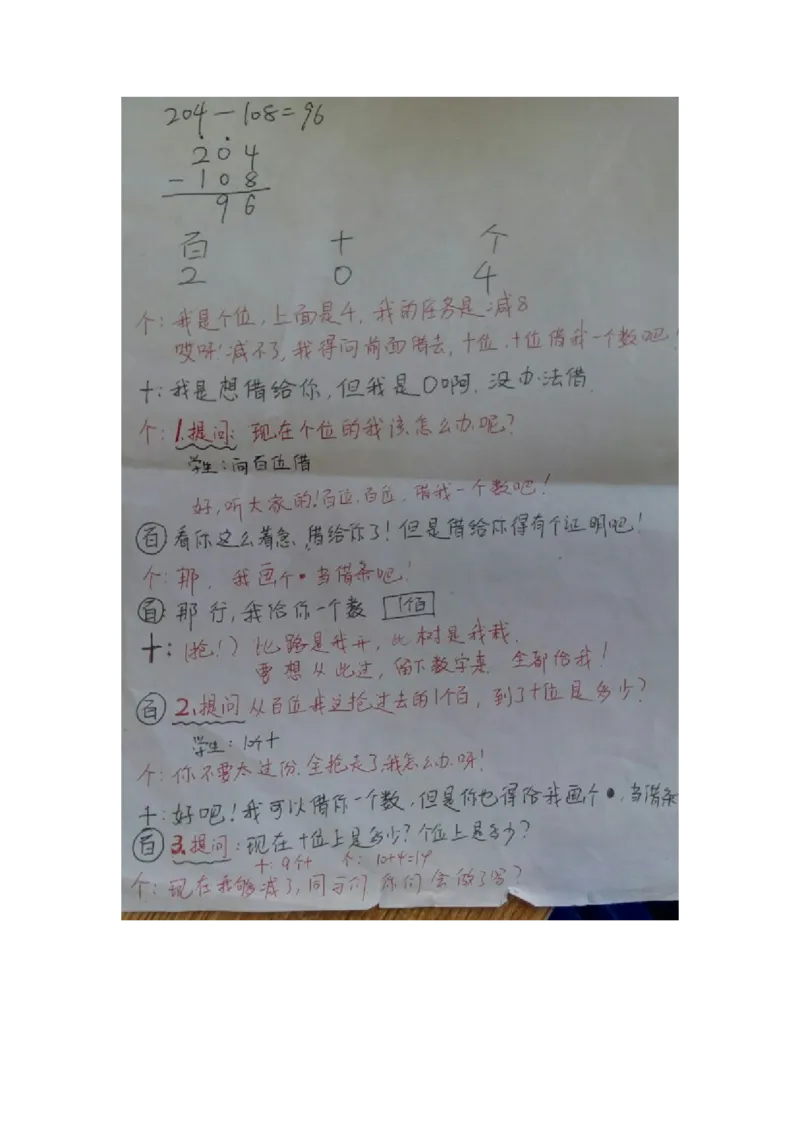 204－108=96
204
－108
96
百 十 个
2 0 4
个：我是个位，上面是4，我的任务是减8
哎呀！减不了，我得向前面借去，十位，十位借我一个数吧！
十：我是想借给你，但我是0啊，没办法借.
个：1.提问：现在个位的我该怎么办呢？
学生：向百位借
好，听大家的！百位，百位，借我一个数吧！
百 看你这么着急，借给你了！但是借给你得有个证明吧！
个：那，我画个•当借条吧！
百：那行，我给你一个数 1个百
十：（抢！）此路是我开，此树是我栽，
要想从此过，留下数字来，全部给我！
百 2.提问 从百位我这抢过去的1个百，到了十位是多少？
学生：10个十
个：你不要太过份，全抢走了我怎么办呀！
十：好吧！我可以借你一个数，但是你也得给我画个•，当借条
百 3.提问：现在十位上是多少？个位上是多少？
十：9个十 个：10+4=14
个：现在我够减了，同学们 你们会做了吗？